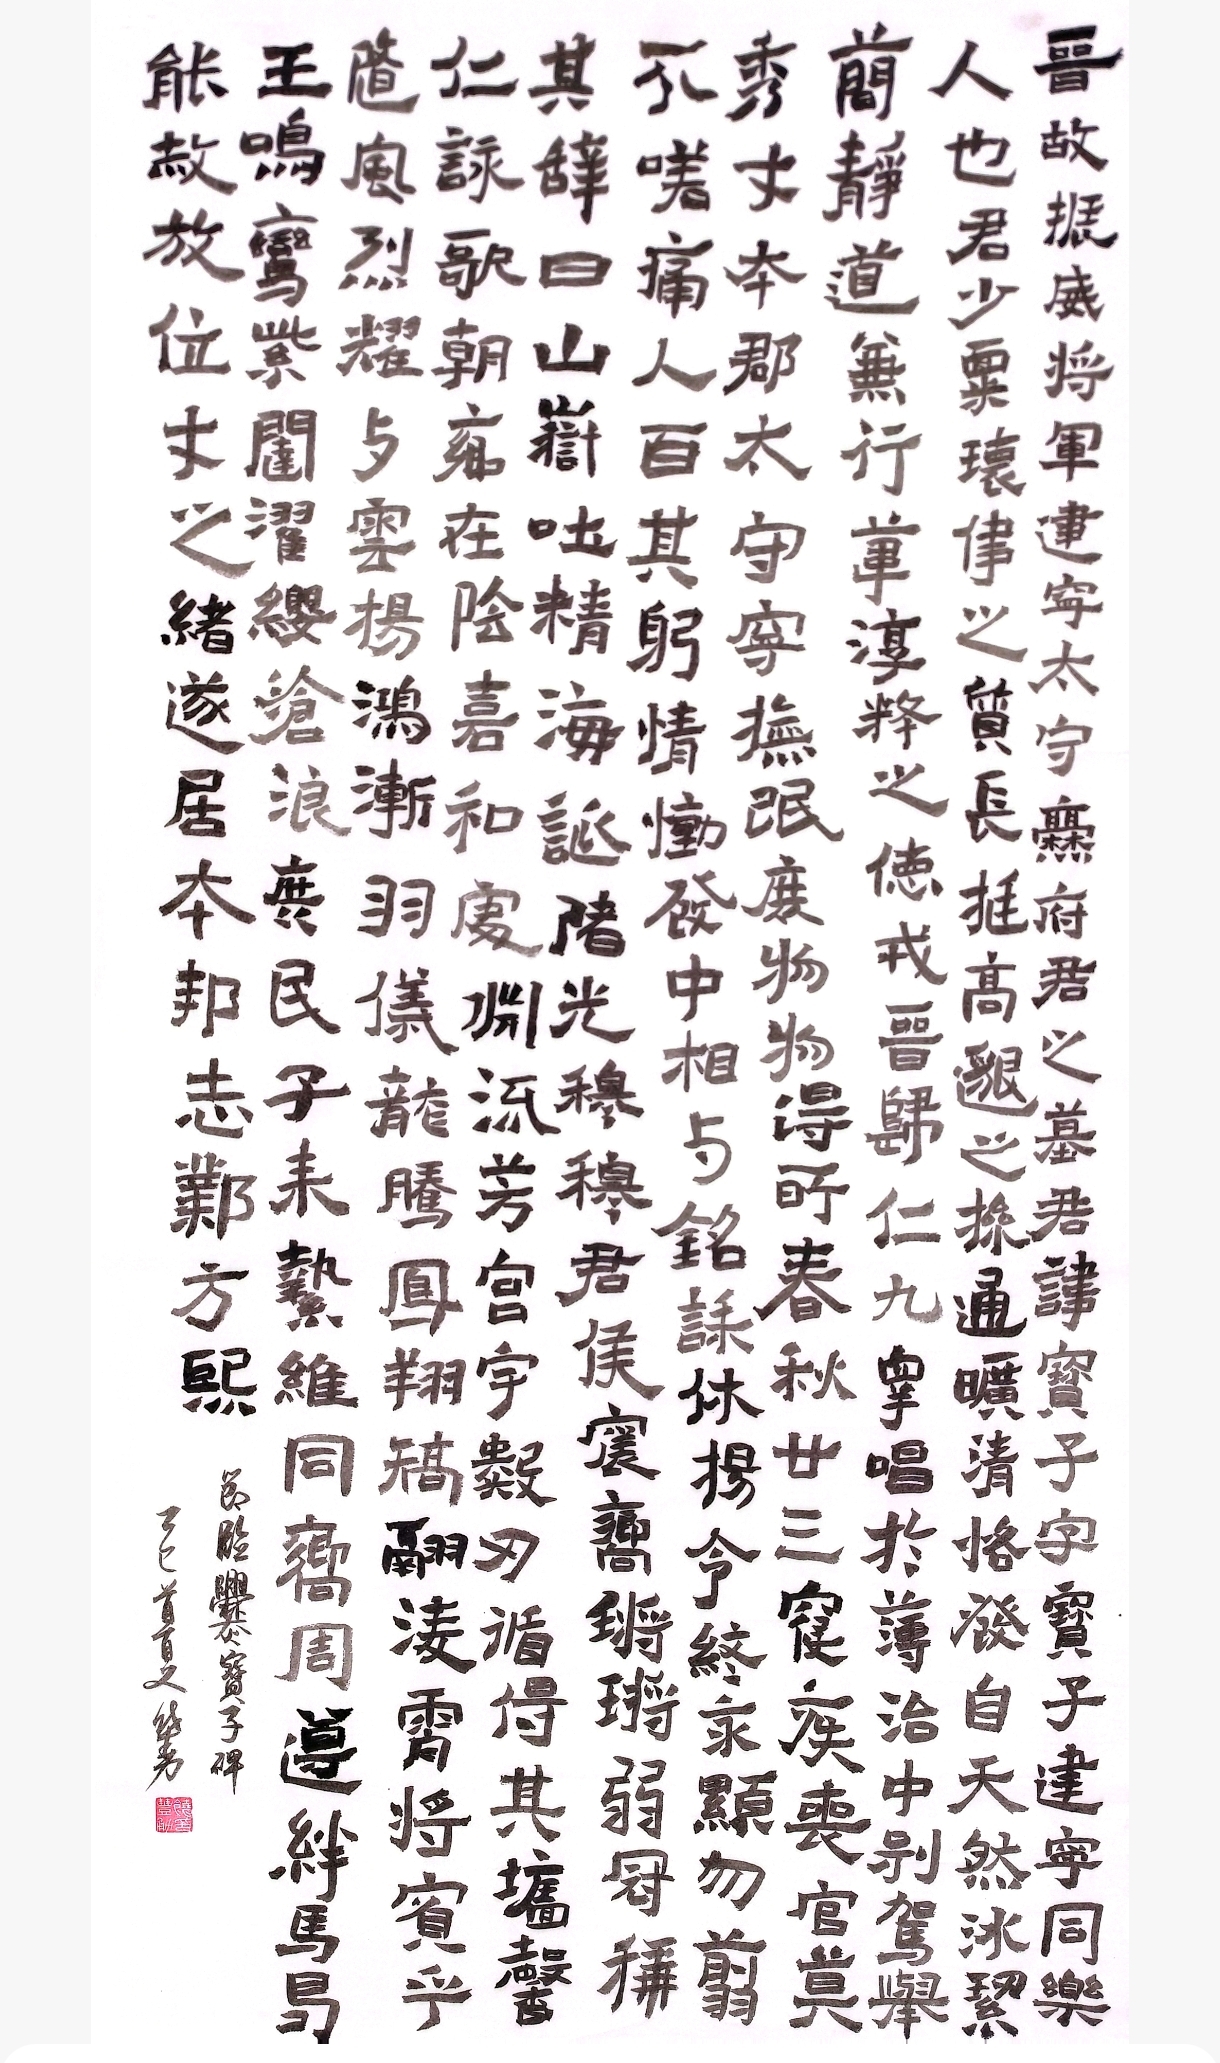 晉故振威将軍建寧太守爨府君之墓君諱寶子字寶子建寧同樂
人也君少稟瓌偉之質長挺高邈之操通曠清恪發自天然冰絜
簡靜道兼行葦淳粹之德戎晉歸仁九皐唱於薄治中别駕舉
秀才本郡太守寧撫氓庶物物得所春秋廿三寢疾喪官莫
不嗟痛人百其躬情慟發中相与銘誄休揚令終永顯勿翦
其辭曰山嶽吐精海誕陼光穆穆君侯震嚮鏘鏘弱冠稱
仁詠歌朝鄉在陰嘉和處淵流芳宫宇數刃循得其墉馨
隨風烈耀与雲揚鴻漸羽儀龍騰鳳翔矯翮凌霄将賓乎
王鳴鸞紫闥濯纓滄浪庶民子来縶維同嚮周遵絆馬曷
能赦放位才之緒遂居本邦志鄴方熙
節臨爨寶子碑
乙巳首夏